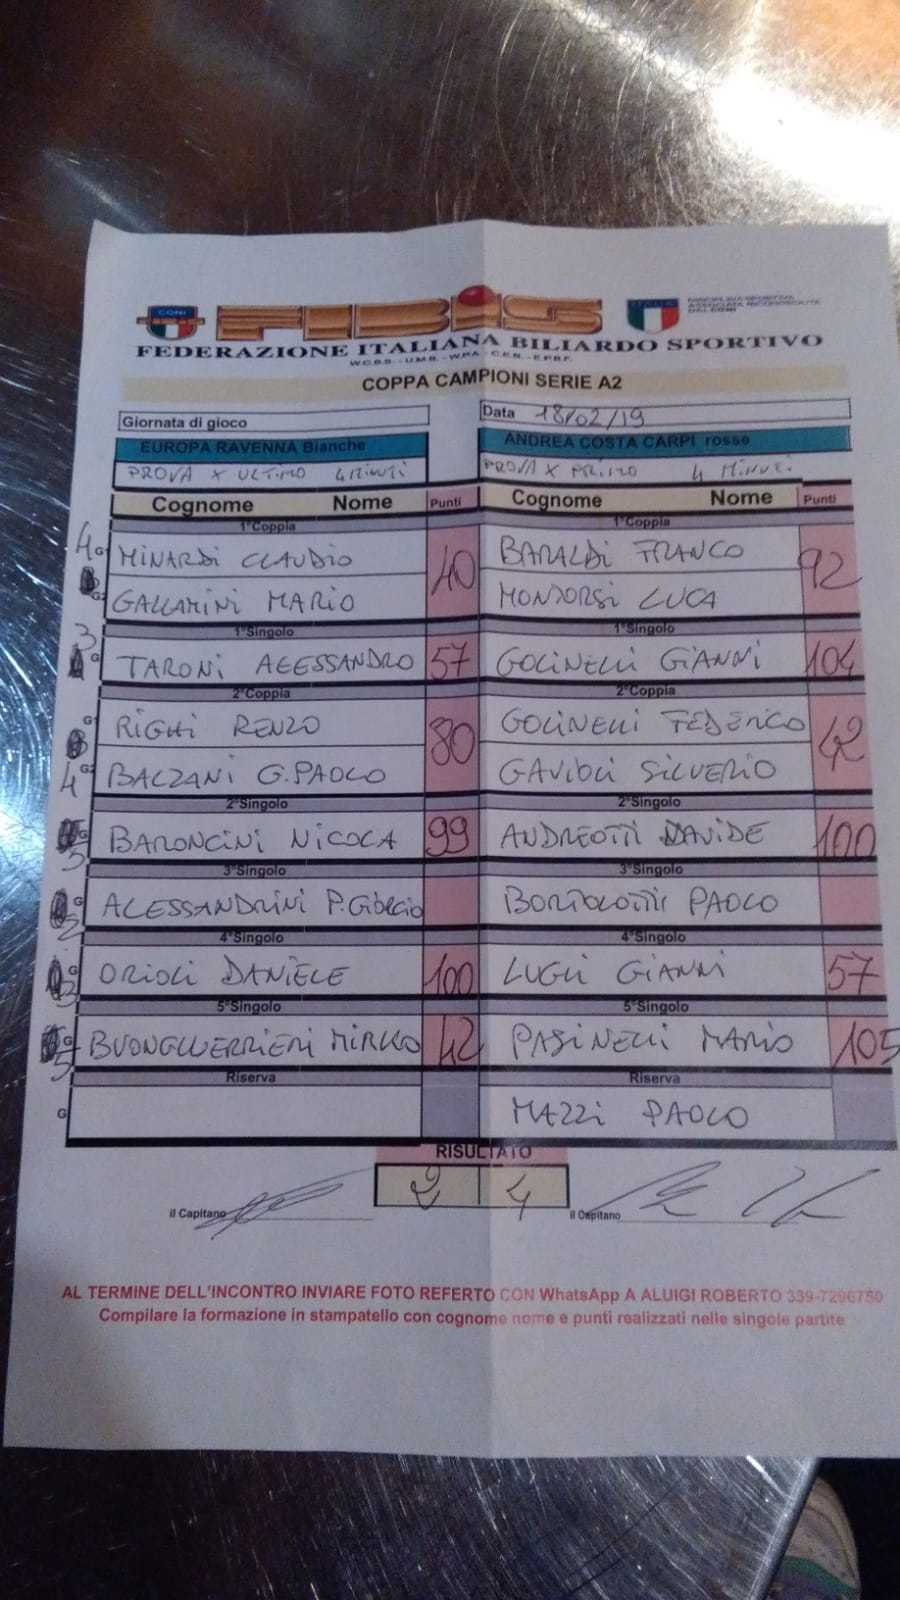 CONI
FIBIS
DISCIPLINA SPORTIVA
ASSOCIATA RICONOSCIUTA
DAL CONI
FEDERAZIONE ITALIANA BILIARDO SPORTIVO
W.C.B.S. - U.M.B. - W.P.A. - C.E.B. - E.P.B.F.
COPPA CAMPIONI SERIE A2
Giornata di gioco Data 18/02/19
EUROPA RAVENNA Bianche ANDREA COSTA CARPI rosse
PROVA X ULTIMO 4 MINUTI PROVA X PRIMO 4 MINUTI
Cognome Nome Punti Cognome Nome Punti
1°Coppia 1°Coppia
4 G1 MINARDI CLAUDIO 40 BARALDI FRANCO 92
G2 GALLAMINI MARIO MONTORSI LUCA
3
1°Singolo 1°Singolo
G TARONI ALESSANDRO 57 GOLINELLI GIANNI 104
2°Coppia 2°Coppia
G1 RIGHI RENZO 80 GOLINELLI FEDERICO 42
4 G2 BALZANI G.PAOLO GAVIOLI SILVERIO
2°Singolo 2°Singolo
5 G BARONCINI NICOLA 99 ANDREOTTI DAVIDE 100
3°Singolo 3°Singolo
2 G ALESSANDRINI P.GIORGIO BORTOLOTTI PAOLO
4°Singolo 4°Singolo
3 G ORIOLI DANIELE 100 LUGLI GIANNI 57
5°Singolo 5°Singolo
5 G BUONGUERRIERI MIRKO 42 PASINELLI MARIO 105
Riserva Riserva
G MAZZI PAOLO
RISULTATO
2 4
il Capitano il Capitano
AL TERMINE DELL'INCONTRO INVIARE FOTO REFERTO CON WhatsApp A ALUIGI ROBERTO 339-7296750
Compilare la formazione in stampatello con cognome nome e punti realizzati nelle singole partite